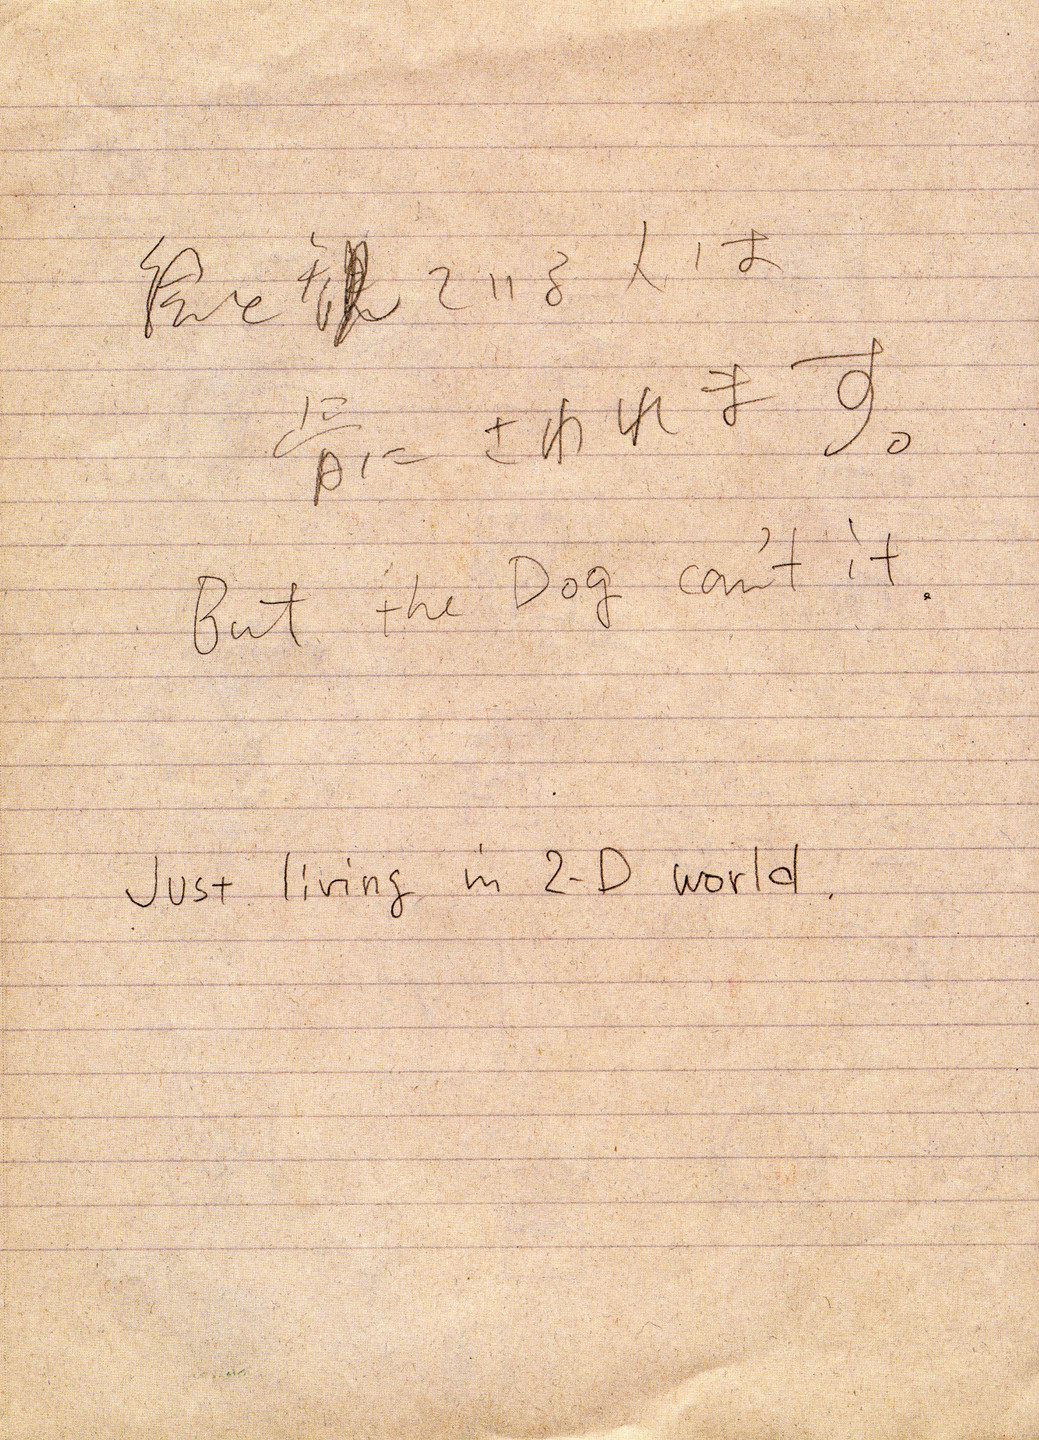 絵を観ている人は
骨にさわれます。
But the Dog can't it.
Just living in 2-D world.